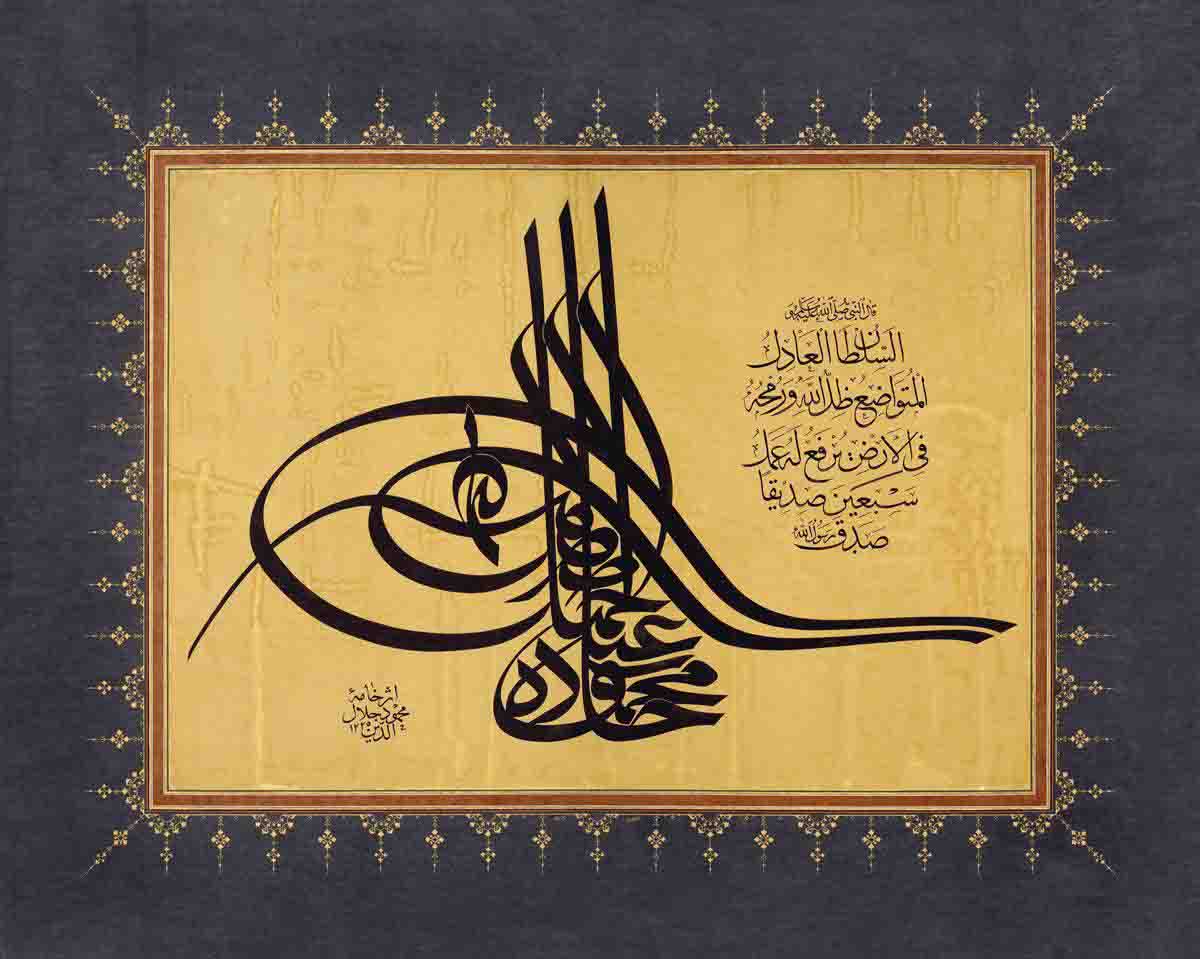 قال النبي صلى الله عليه وسلم
السُلطان العَادِلُ
المُتَوَاضِعُ ظِلُّ اللهِ وَرُمْحُهُ
فِي الاَرْضِ يُرْفَعُ لَهُ عَمَلُ
سَبْعين صديقًا
صَدَق رَسُولُ الله
محمود خان بن عبدالحميد مظفر دائما
اثر خامهٔ
محمود جلال
الدين ١٢٢٥